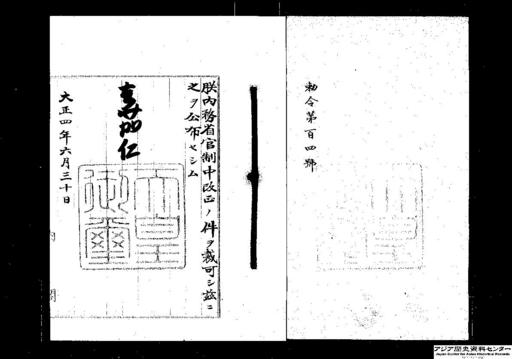 勅令第百四號
朕内務省官制中改正ノ件ヲ裁可シ茲ニ
之ヲ公布セシム
嘉仁
天皇
御璽
大正四年六月三十日
内
閣
アジア歴史資料センター
Japan Center for Asian Historical Records